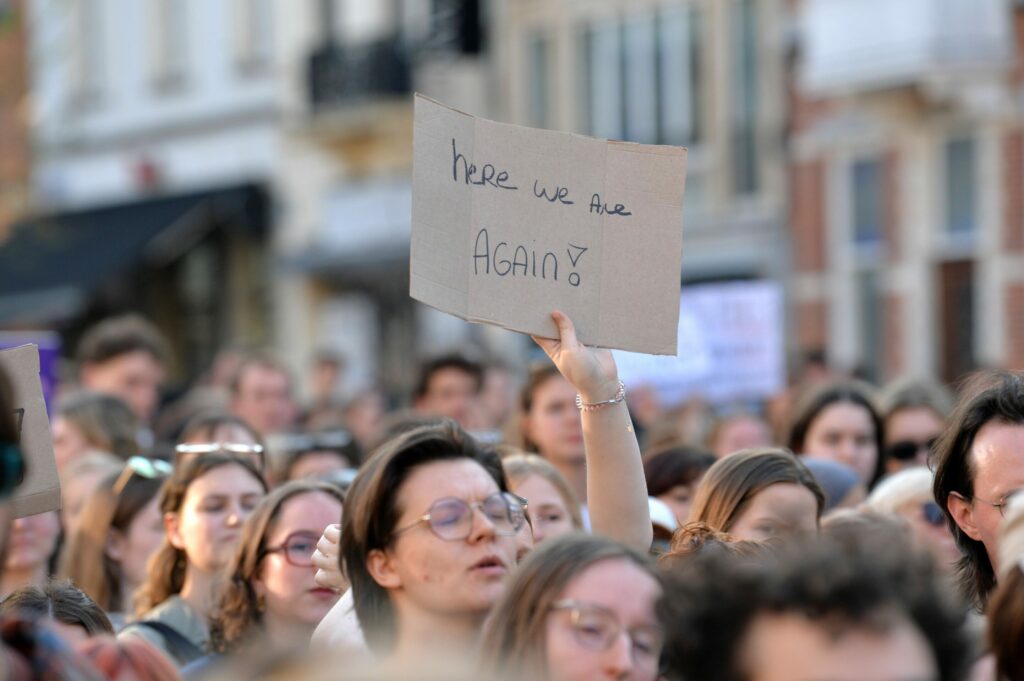 here we Are
AGAIn!